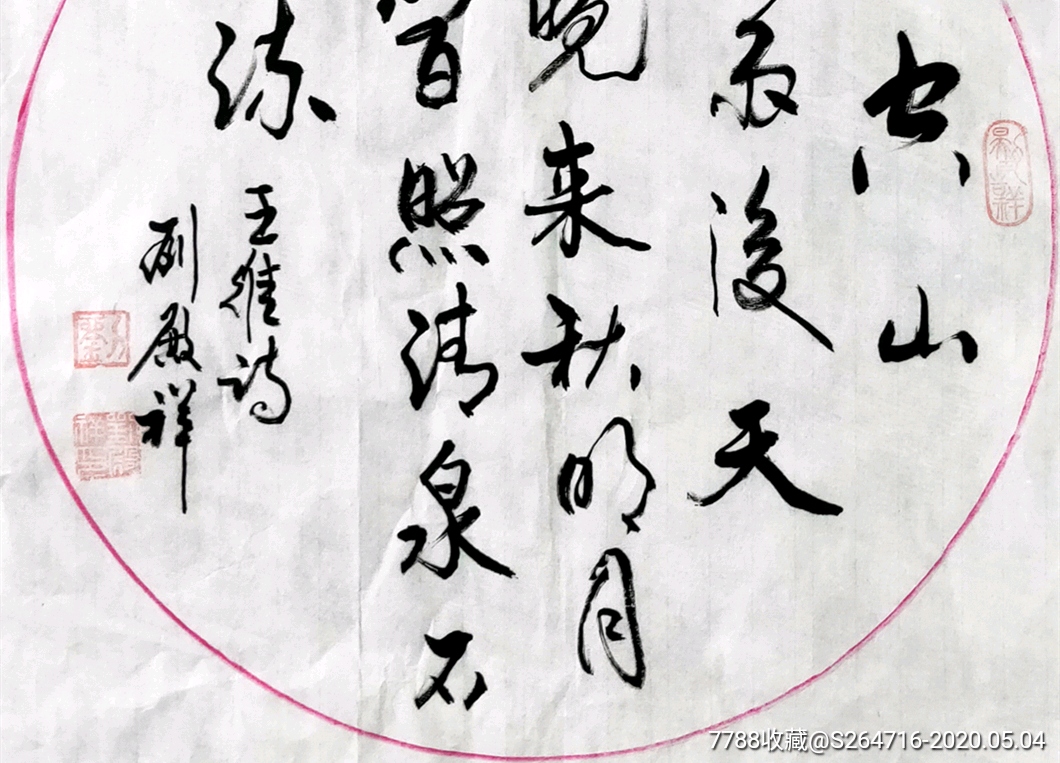 空山
雨後天
晚来秋明月
照清泉石
流
王維诗
刘殿祥
7788收藏@S264716-2020.05.04